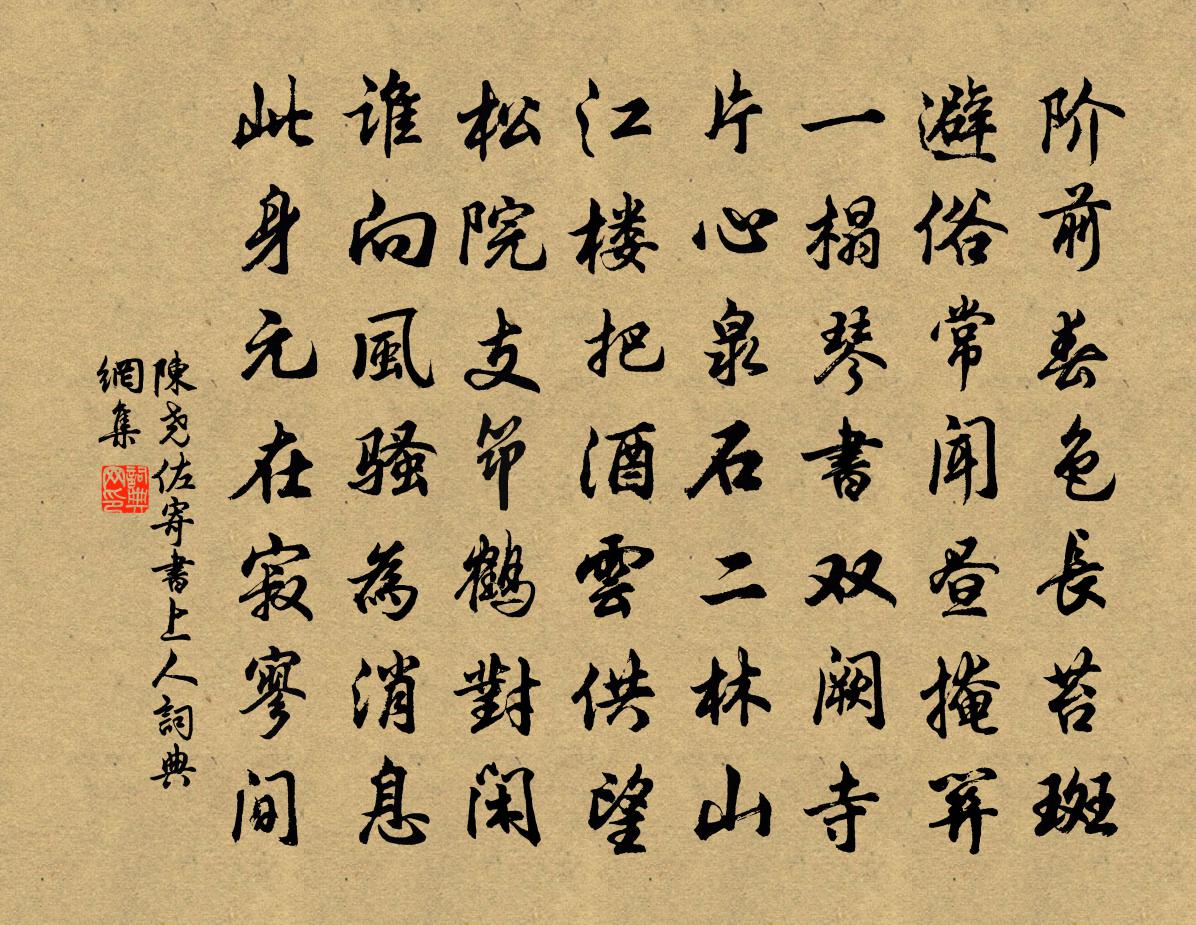 阶前春色長苔斑
避俗常闻昼掩关
一榻琴書双阙寺
片心泉石二林山
江楼把酒雲供望
松院支笻鹤對闲
谁向風骚為消息
此身元在寂寥间
陳尧佐寄書上人詞典
網集
詞典网印